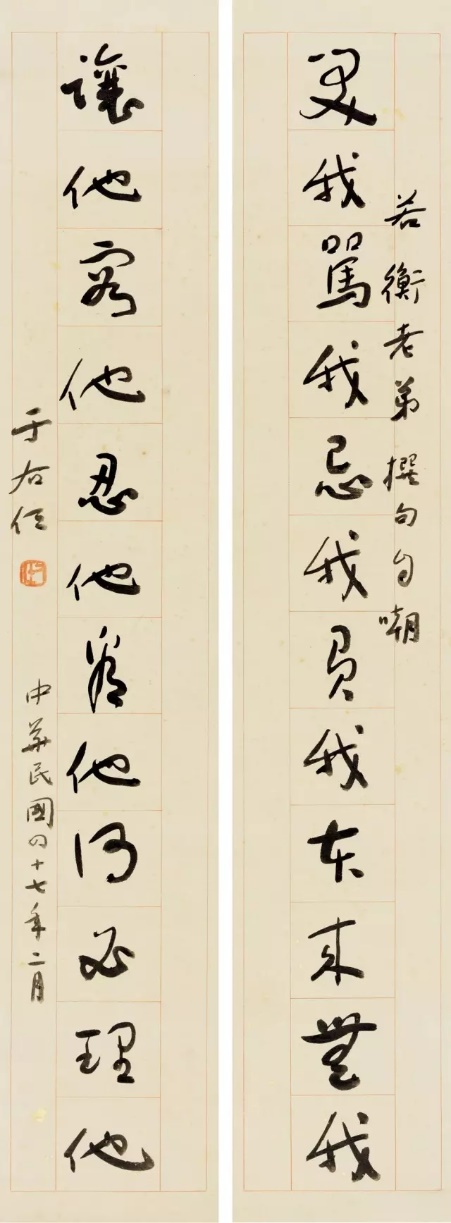 若衡老弟撰句自嘲
我罵我忌我負我本来無我
讓他容他忍他他何必理他
于右任
中華民國四十七年二月